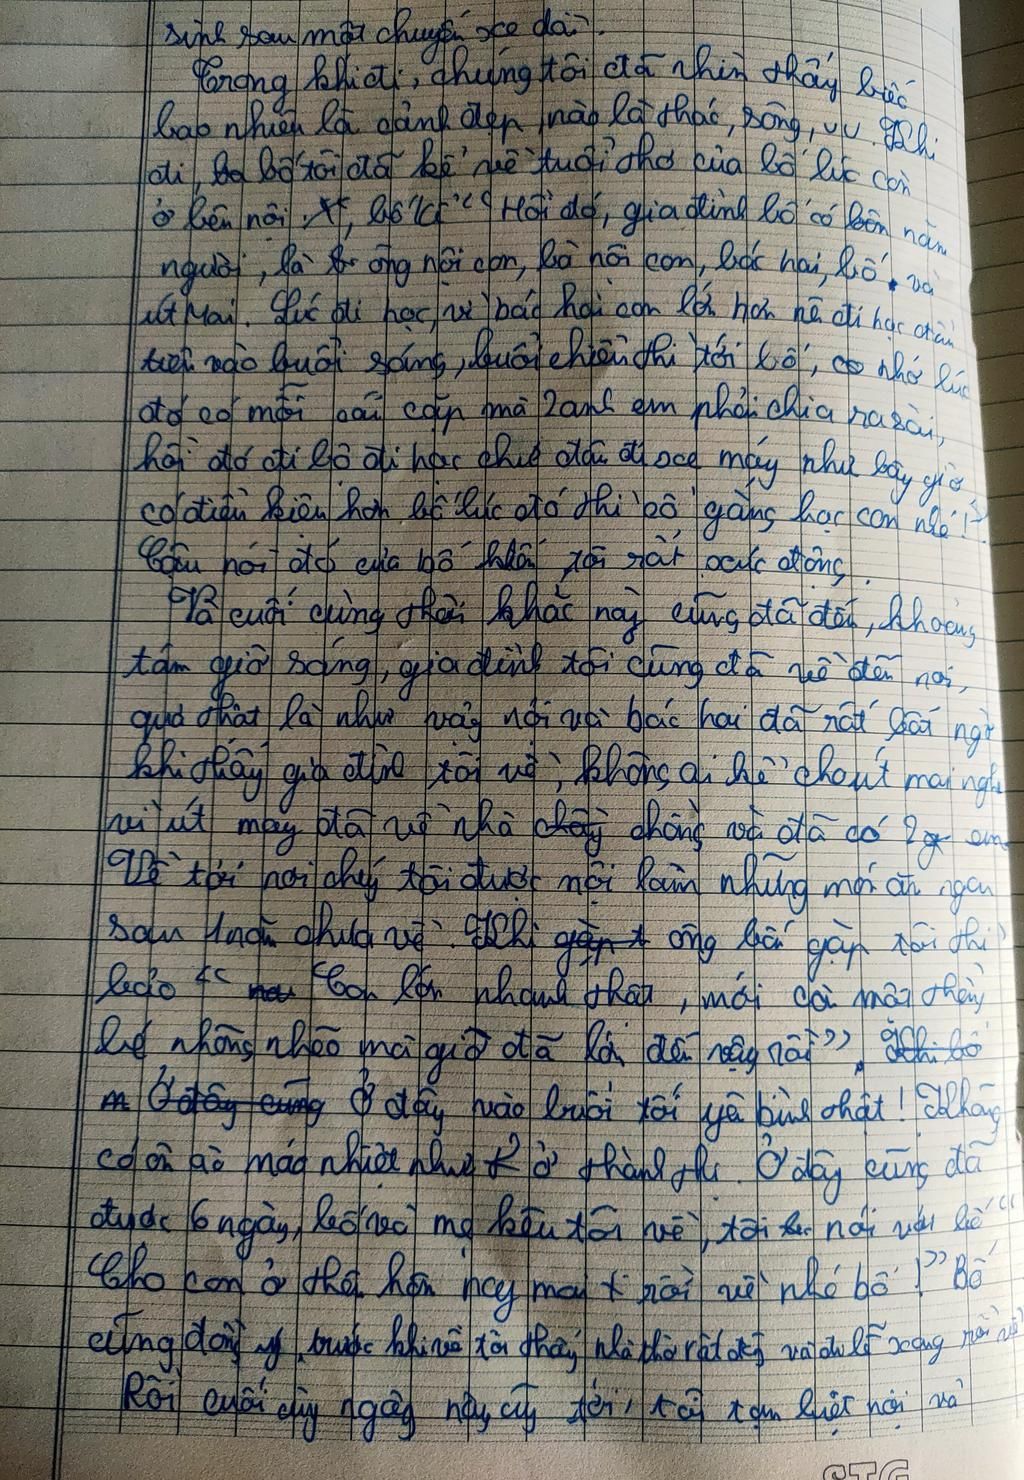 sinh sau một chuyến xe dài.
Trong khi đi, chúng tôi đã nhìn thấy biếc
bao nhiên là cảnh đẹp nào là thác, sông, vv. Khi
đi, bố tôi đã kể về tuổi thơ của bố lúc còn
ở bên nội, bố kể "Hồi đó, gia đình bố có năm
người, là ông nội con, bà nội con, bác hai, bố và
út Mai. Lúc đi học, vì bác hai con lớn hơn nê đi học đầu
tiết vào buổi sáng, buổi chiều thì tới bố, nhớ lúc
đó có mỗi cái cặp mà 2 anh em phải chia ra xài,
hồi đó đi bộ đi học chứ đâu đi xe máy như bây giờ
có điều kiện hơn bố lúc đó thì cố gắng học con nhé!"
Câu nói đó của bố khiến tôi rất xúc động.
Và cuối cùng thời khắc này cũng đã đến, khoảng
tám giờ sáng, gia đình tôi cũng đã về đến nơi,
quả thật là như vậy nội và bác hai đã rất bất ngờ
khi thấy gia đình tôi về, không ai kể cho út mai nghe
vì út may đã về nhà chồng và đã có 2 em
Về tới nơi chúng tôi được nội làm những món ăn ngon
sau 1 năm chưa về. Khi ông bác gặp tôi thì
bảo "Con lớn nhanh thật, mới còn một thằng
bé nhõng nhẽo mà giờ đã lớn đến vậy rồi".
Ở đây vào buổi tối yên bình thật! Không
có ồn ào náo nhiệt như ở thành thị. Ở đây cũng đã
được 6 ngày, bố và mẹ kêu tôi về, tôi nói với bố "
Cho con ở thêm hôm nay mai rồi về nhé bố!" Bố
cũng đồng ý, trước khi về tôi thấy nhà thờ rất đẹp và dự lễ xong rồi về
Rồi cuối cùng ngày này cũng tới, tôi tạm biệt nội và
STG